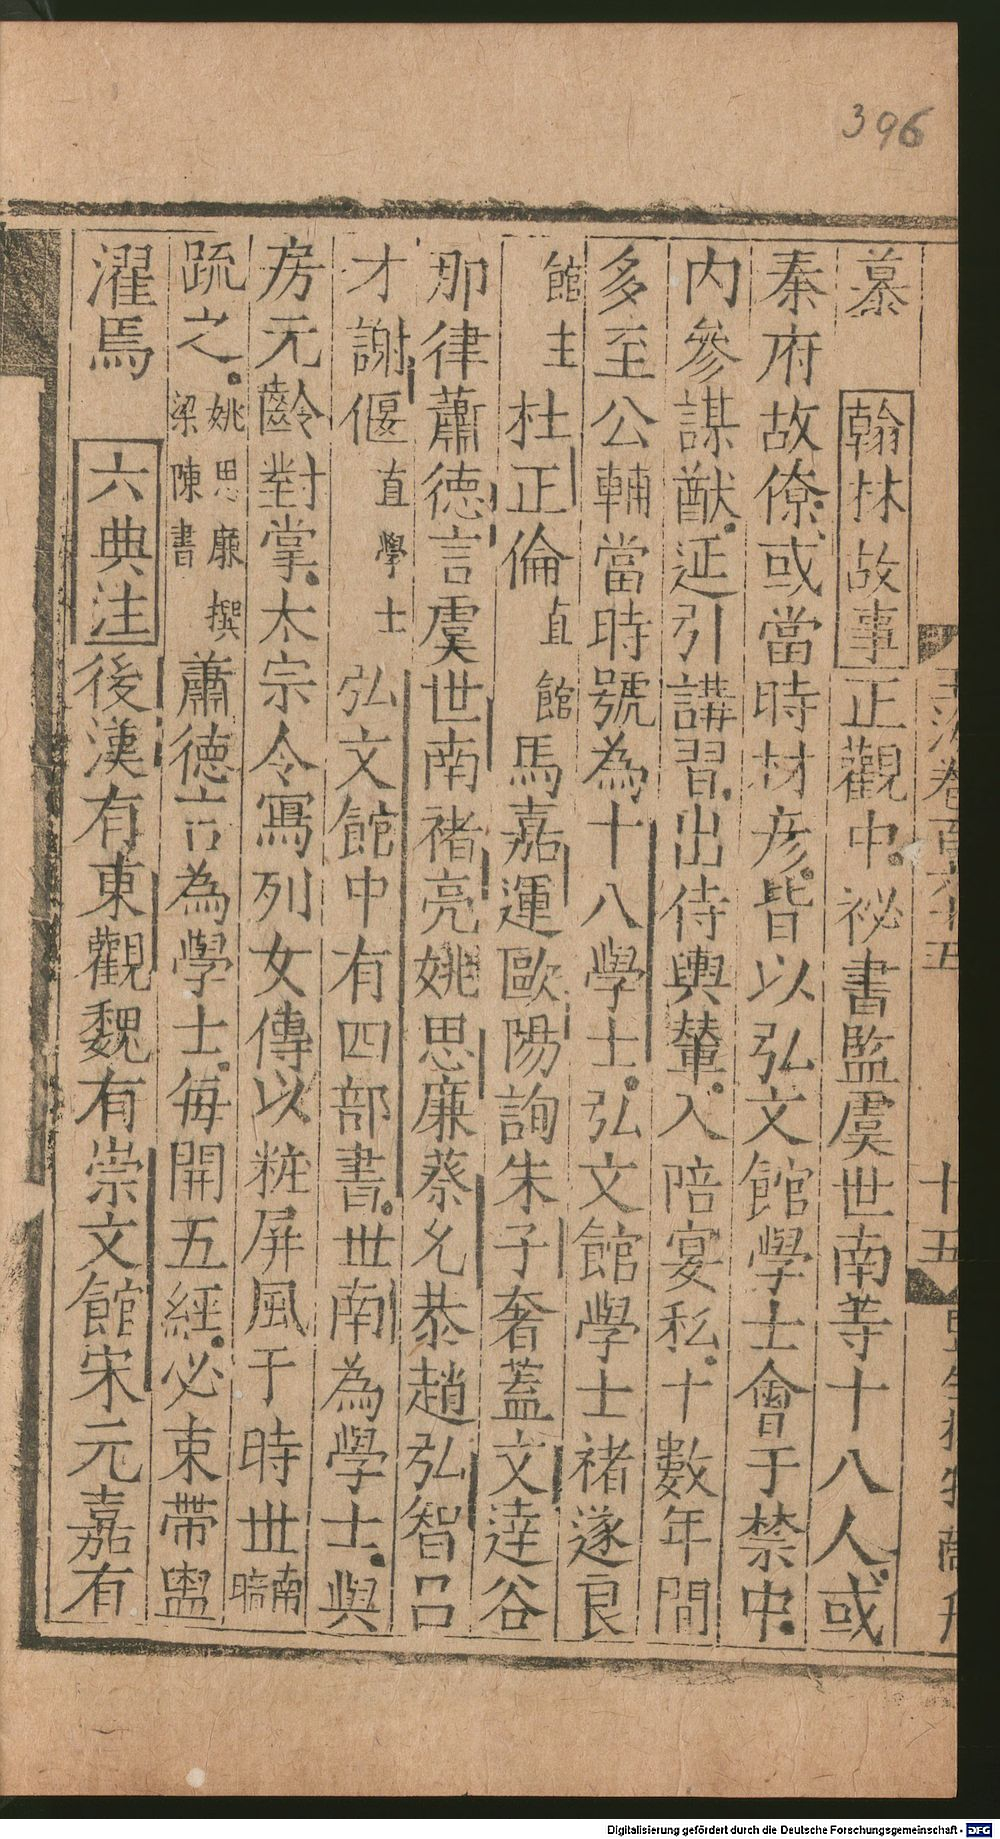 396
慕 翰林故事正觀中祕書監虞世南等十八人或
秦府故僚或當時材彥皆以弘文館學士會于禁中
內參謀猷延引講習出侍輿輦入陪宴私十數年間
多至公輔當時號為十八學士弘文館學士褚遂良
館主杜正倫直館馬嘉運歐陽詢朱子奢蓋文達谷
那律蕭德言虞世南褚亮姚思廉蔡允恭趙弘智呂
才謝偃直學士弘文館中有四部書世南為學士與
房元齡對掌太宗令寫列女傳以粧屏風于時世南暗
疏之姚思廉撰梁陳書蕭德言為學士每開五經必束帶盥
濯焉 六典注後漢有東觀魏有崇文館宋元嘉有
十五
Digitalisierung gefördert durch die Deutsche Forschungsgemeinschaft - DFG